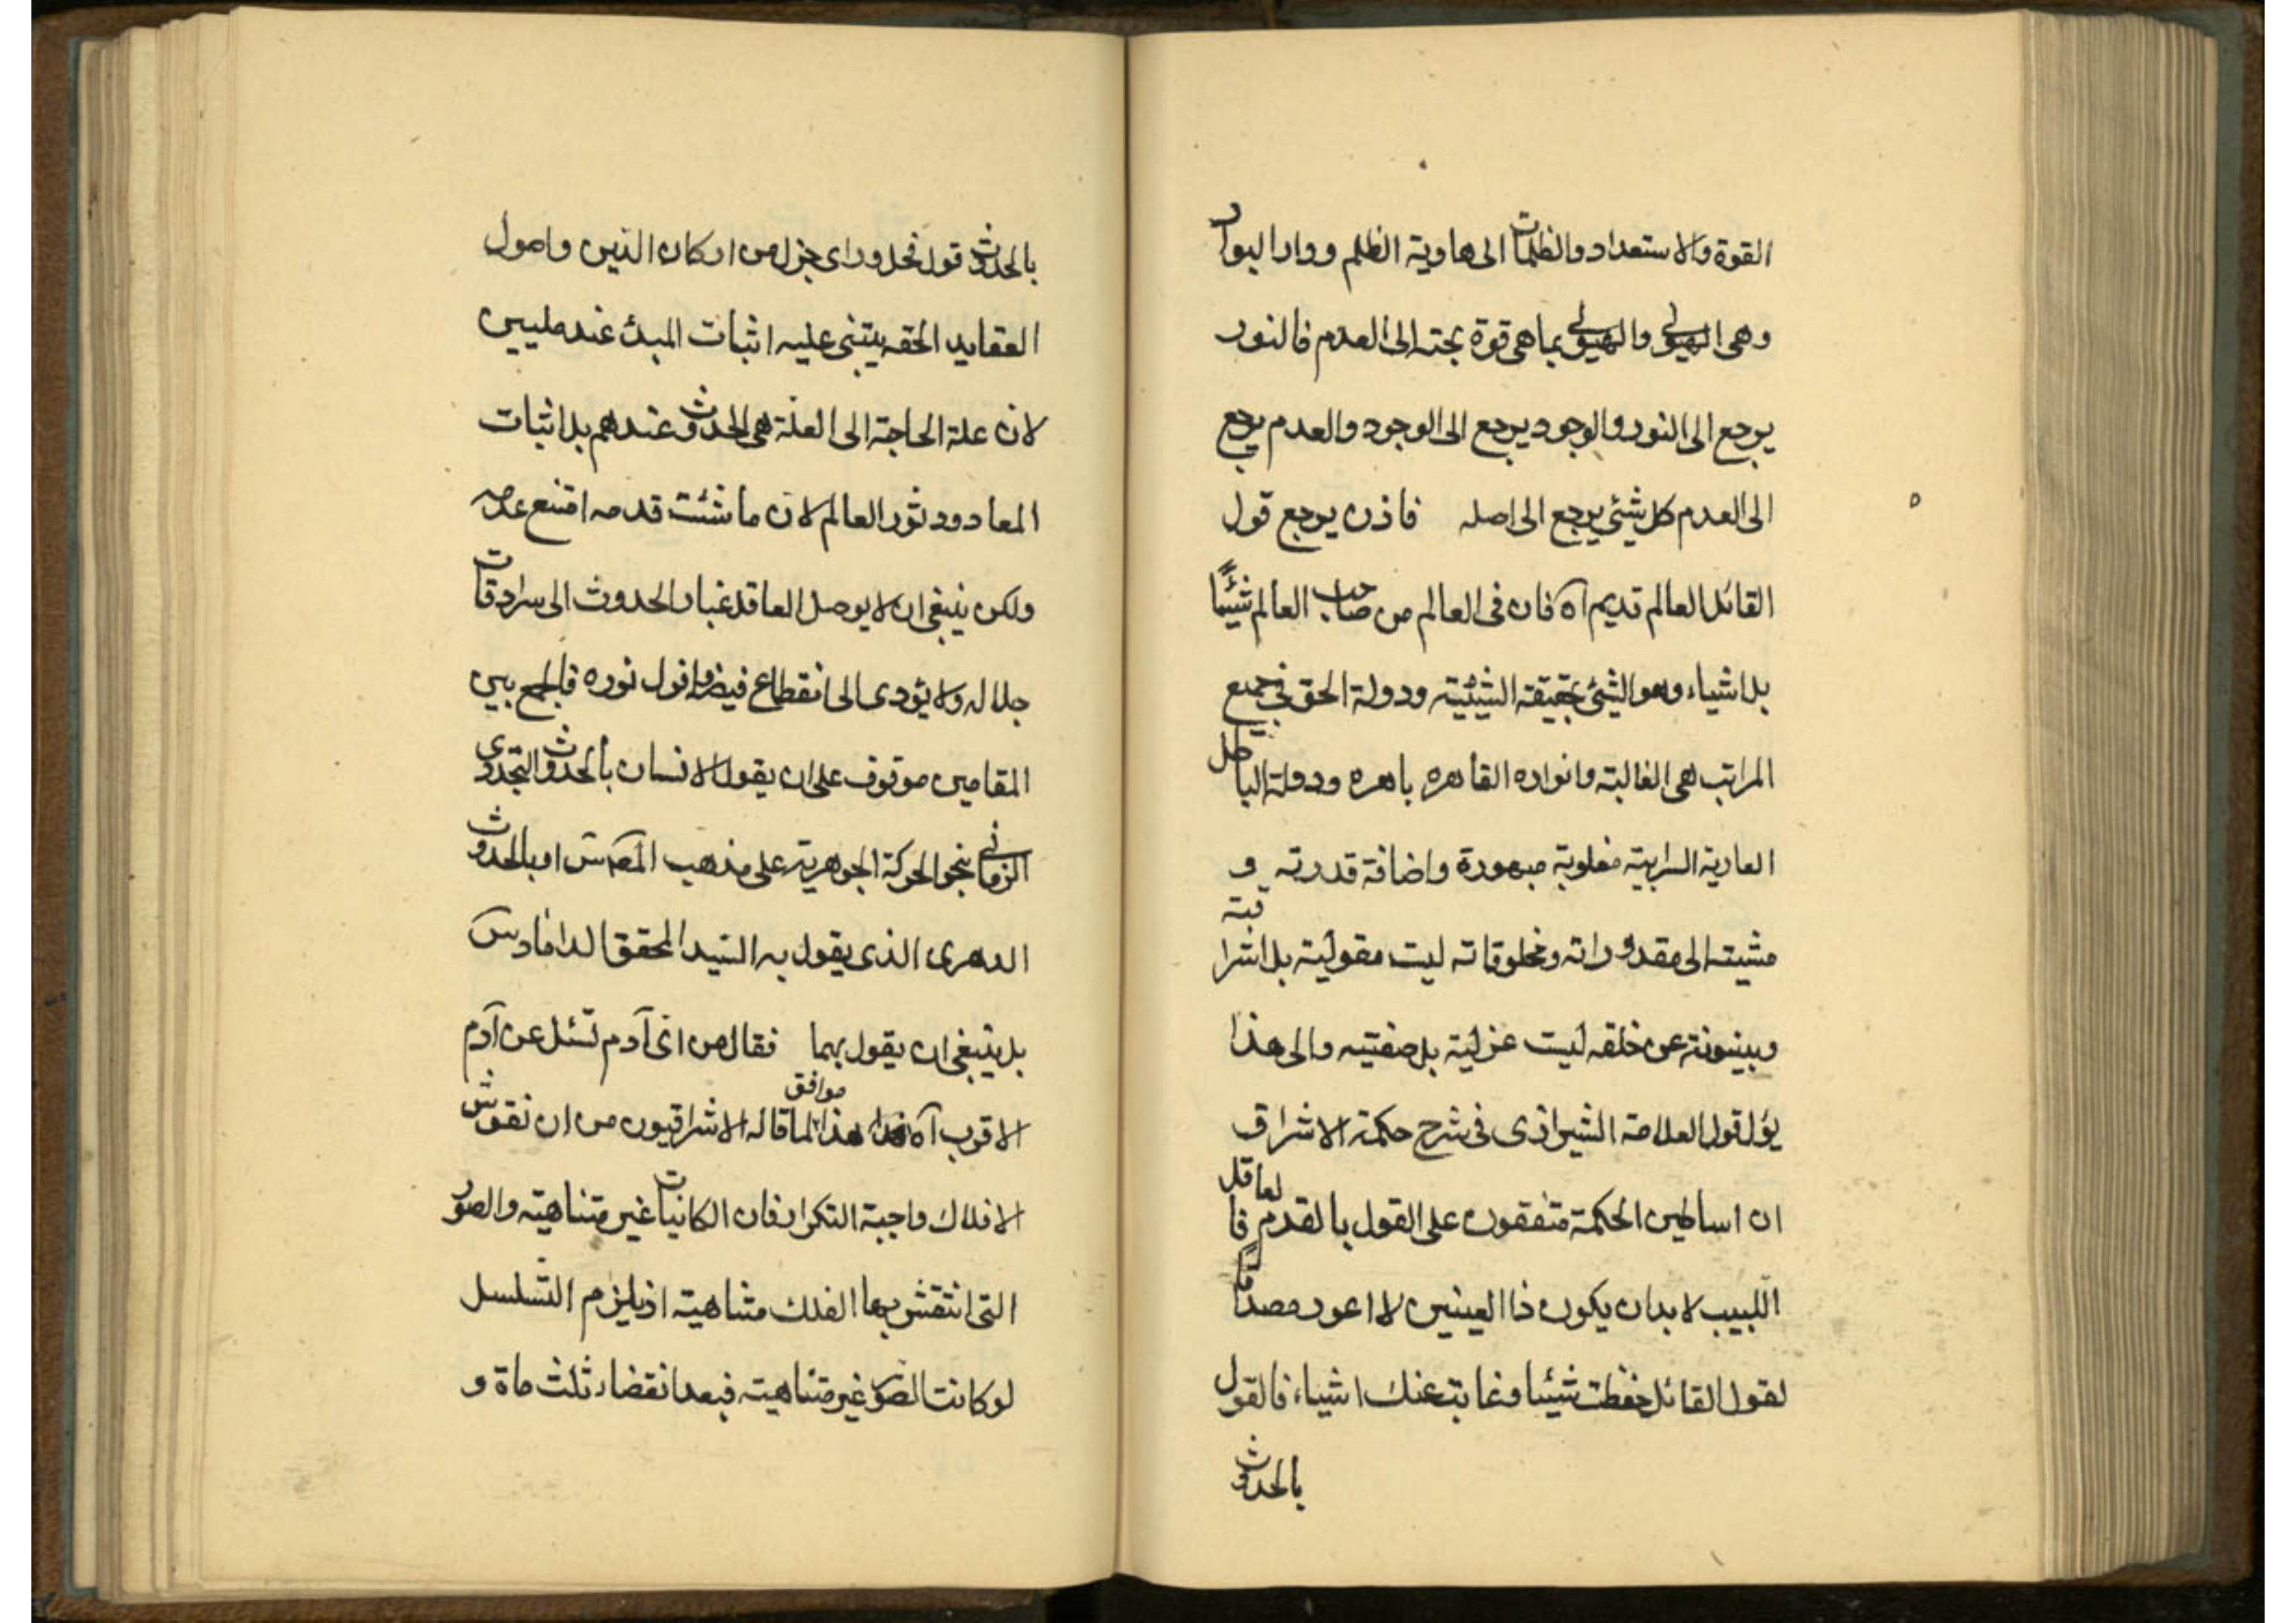 القوة والاستعداد والظلمات الى هاوية الظلم ودار البوار
وهى الهيولى والهيولى بما هى قوة بجته الى العدم فالنور
يرجع الى النور والوجود يرجع الى الوجود والعدم يرجع
الى العدم كل شيئ يرجع الى اصله فاذن يرجع قول
القائل العالم قديم آه فان فى العالم من صاحب العالم شيئًا
بل اشياء وهو الشيئ بحقيقة الشيئية ودولة الحق فى جميع
المراتب هى الغالبة وانواره القاهره باهره ودولة الباطل
العارية السرابية مغلوبة مبهورة واضافة قدرته و
مشيته الى مقدوراته ومخلوقاته ليست مقولية بل اشراقية
وبينونته عن خلقه ليست عزلية بل صفتيه والى هذا
يؤل قول العلامة الشيرازى فى شرح حكمة الاشراق
ان اساطين الحكمة متفقون على القول بالقدم فالعاقل
اللبيب لا بد ان يكون ذا العينين لا اعور مصداقًا
لقول القائل حفظت شيئا وغابت عنك اشياء فالقول
بالحدوث
بالحدوث قول فحل وراى جزل من اركان الدين واصول
العقايد الحقه يبتنى عليه اثبات المبدء عند مليين
لان علة الحاجة الى العلة هى الحدوث عندهم بل اثبات
المعاد ودثور العالم لان ما ثبت قدمه امتنع عدمه
ولكن ينبغى ان لا يوصل العاقل غبار الحدوث الى سرادقات
جلاله ولا يؤدى الى انقطاع فيضه وافول نوره فالجمع بين
المقامين موقوف على ان يقول الانسان بالحدوث التجددى
الزمانى بنحو الحركة الجوهرية على مذهب المصنف س او بالحدوث
الدهرى الذى يقول به السيد المحقق الداماد س
بل ينبغى ان يقول بهما فقال من اى آدم تسئل عن آدم
الاقرب آه هذا موافق لما قاله الاشراقيون من ان نقوش
الافلاك واجبة التكرار فان الكائنات غير متناهية والصور
التى انتقش بها الفلك متناهية اذ يلزم التسلسل
لو كانت الصور غير متناهية فبعد انقضاء ثلث ماة و